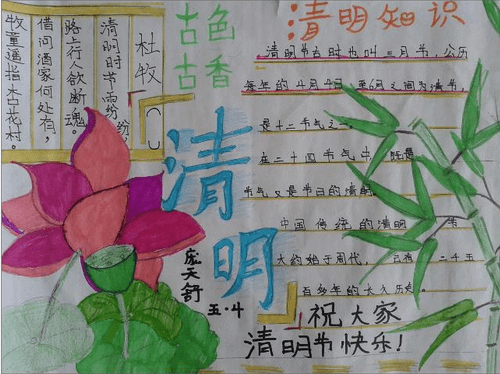 古色
古香
清明知识
杜牧
清明时节雨纷纷
路上行人欲断魂。
借问酒家何处有,
牧童遥指杏花村。
清明节古时也叫三月节,公历
每年的4月4日至6日之间为清节,
是十二节气之
在二十四节气中 既是
节气又是节日的清明。
中国传统的清明 节
大约始于周代, 二千五
百多年的 久历
清明
庞天舒
五·4
祝大家
清明节快乐!